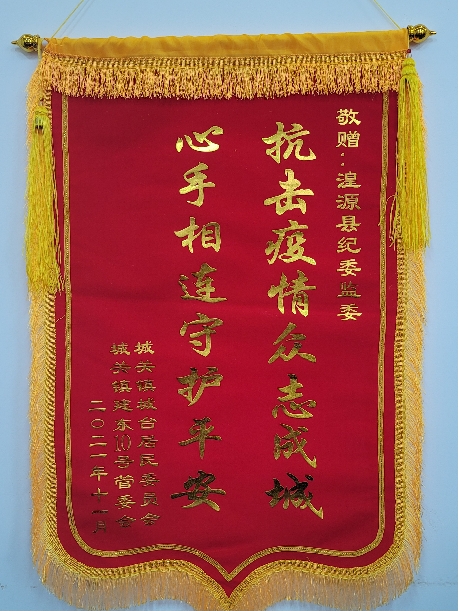 敬赠：湟源县纪委监委
抗击疫情众志成城
心手相连守护平安
城关镇城台居民委员会
城关镇建东10号管委会
二〇二一年十一月